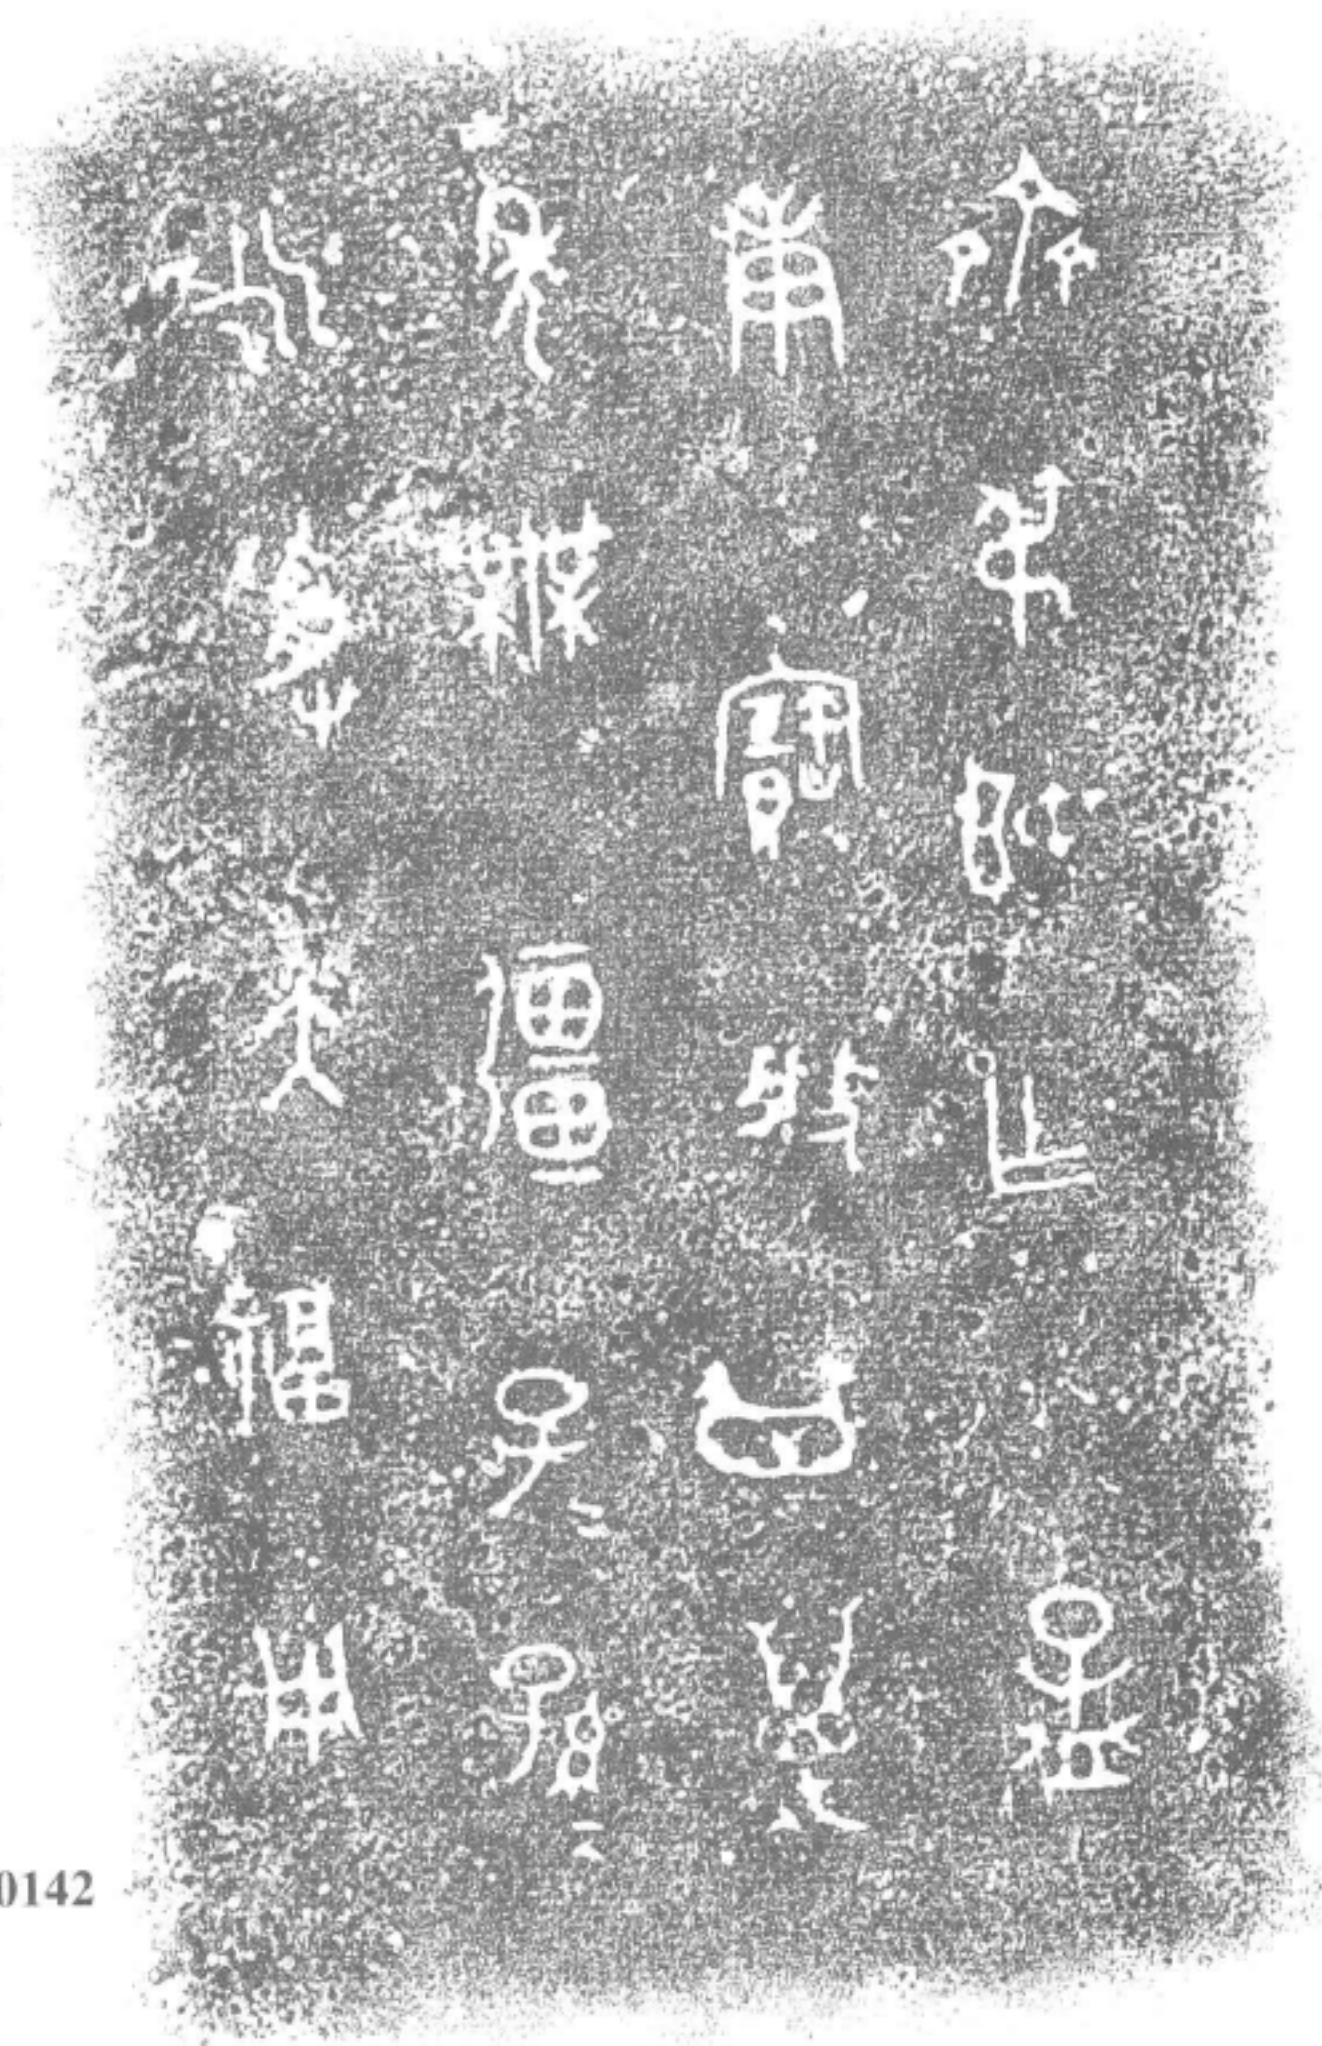 齊弔姬乍孟
庚寶般其萬
年無彊子＝孫＝
永受大福用
0142